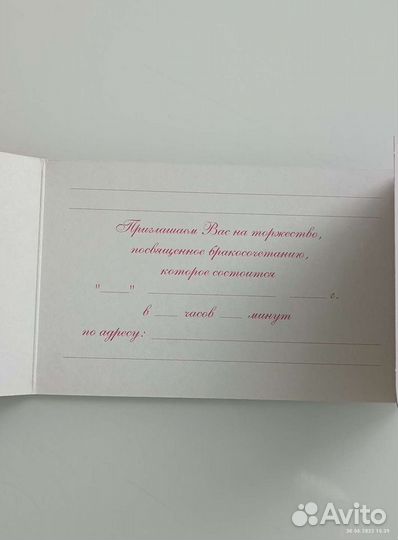 Приглашаем Вас на торжество,
посвященное бракосочетанию,
которое состоится
"____" ____________________ _____ г.
в ____ часов ____ минут
по адресу: ______________________________
Avito
30.06.2023 16:39